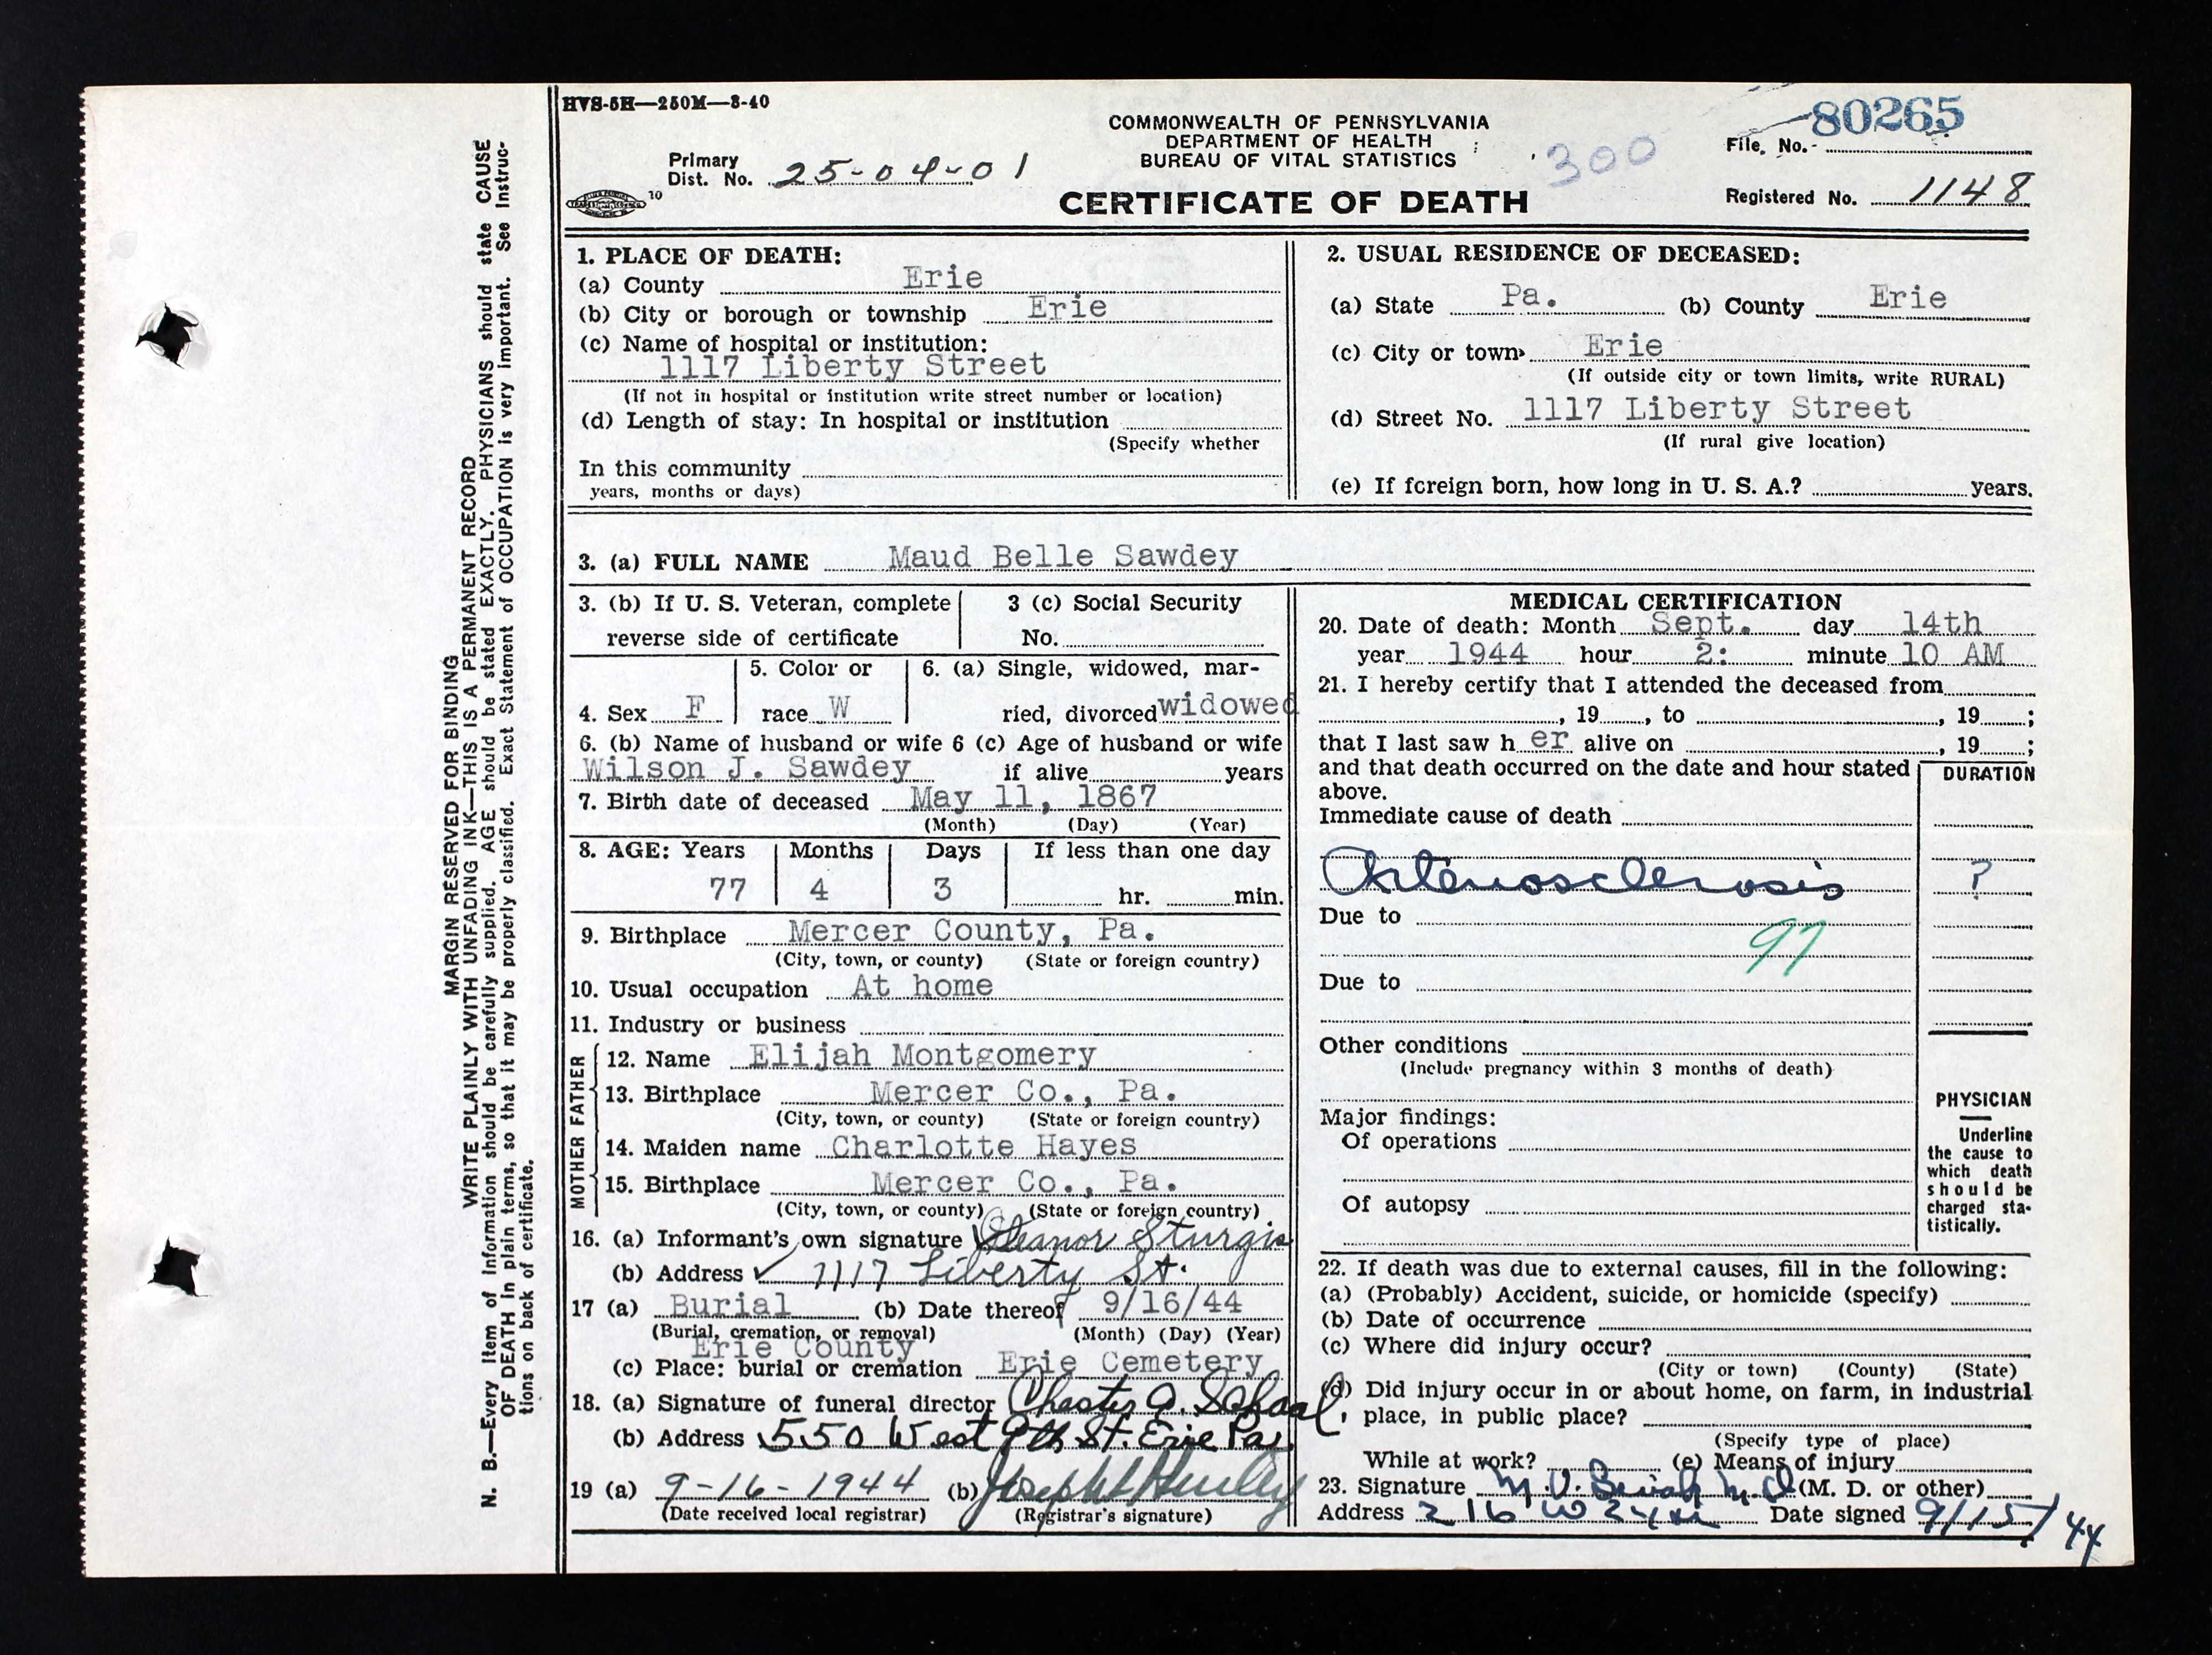 HVS-5H—250M—8-40
COMMONWEALTH OF PENNSYLVANIA
DEPARTMENT OF HEALTH
BUREAU OF VITAL STATISTICS
CERTIFICATE OF DEATH
300
Primary
Dist. No. 25-04-01
10
80265
File. No.
Registered No. 1148
MARGIN RESERVED FOR BINDING
WRITE PLAINLY WITH UNFADING INK—THIS IS A PERMANENT RECORD
N. B.—Every item of information should be carefully supplied. AGE should be stated EXACTLY. PHYSICIANS should state CAUSE
OF DEATH in plain terms, so that it may be properly classified. Exact Statement of OCCUPATION is very important. See Instruc-
tions on back of certificate.
1. PLACE OF DEATH:
(a) County Erie
(b) City or borough or township Erie
(c) Name of hospital or institution:
1117 Liberty Street
(If not in hospital or institution write street number or location)
(d) Length of stay: In hospital or institution
(Specify whether
In this community
years, months or days)
2. USUAL RESIDENCE OF DECEASED:
(a) State Pa. (b) County Erie
(c) City or town Erie
(If outside city or town limits, write RURAL)
(d) Street No. 1117 Liberty Street
(If rural give location)
(e) If foreign born, how long in U. S. A.? years.
3. (a) FULL NAME Maud Belle Sawdey
3. (b) If U. S. Veteran, complete
reverse side of certificate
3 (c) Social Security
No.
4. Sex F
5. Color or
race W
6. (a) Single, widowed, mar-
ried, divorced widowed
6. (b) Name of husband or wife 6 (c) Age of husband or wife
Wilson J. Sawdey if alive years
7. Birth date of deceased May 11, 1867
(Month) (Day) (Year)
8. AGE: Years Months Days If less than one day
77 4 3 hr. min.
9. Birthplace Mercer County, Pa.
(City, town, or county) (State or foreign country)
10. Usual occupation At home
11. Industry or business
FATHER
12. Name Elijah Montgomery
13. Birthplace Mercer Co., Pa.
(City, town, or county) (State or foreign country)
MOTHER
14. Maiden name Charlotte Hayes
15. Birthplace Mercer Co., Pa.
(City, town, or county) (State or foreign country)
16. (a) Informant's own signature Eleanor Sturgis
(b) Address 1117 Liberty St.
17 (a) Burial (b) Date thereof 9/16/44
(Burial, cremation, or removal) (Month) (Day) (Year)
Erie County
(c) Place: burial or cremation Erie Cemetery
18. (a) Signature of funeral director Chester A. Schaal
(b) Address 550 West 9th St. Erie Pa.
19 (a) 9-16-1944 (b) Joseph Hurley
(Date received local registrar) (Registrar's signature)
MEDICAL CERTIFICATION
20. Date of death: Month Sept. day 14th
year 1944 hour 2: minute 10 AM
21. I hereby certify that I attended the deceased from
, 19 , to , 19 ;
that I last saw h er alive on , 19 ;
and that death occurred on the date and hour stated
above.
DURATION
Immediate cause of death
Arteriosclerosis ?
Due to
97
Due to
Other conditions
(Include pregnancy within 3 months of death)
Major findings:
Of operations
Of autopsy
PHYSICIAN
Underline
the cause to
which death
should be
charged sta-
tistically.
22. If death was due to external causes, fill in the following:
(a) (Probably) Accident, suicide, or homicide (specify)
(b) Date of occurrence
(c) Where did injury occur?
(City or town) (County) (State)
(d) Did injury occur in or about home, on farm, in industrial
place, in public place?
(Specify type of place)
While at work? (e) Means of injury
23. Signature M. D. (M. D. or other)
Address 216 W Date signed 9/15/44